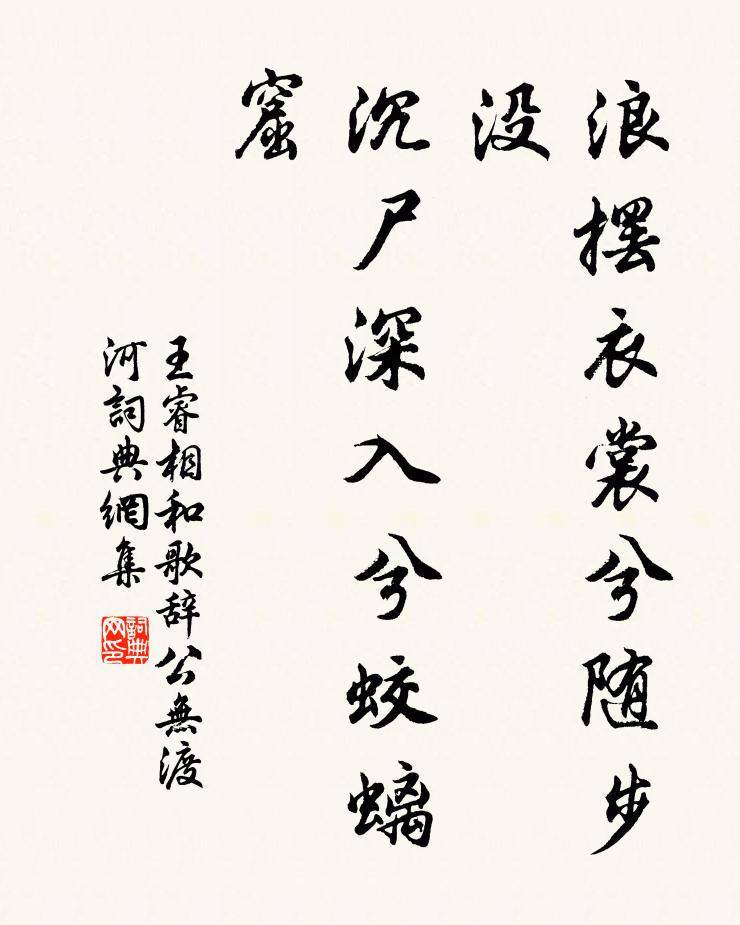 浪摆衣裳兮随步
没
沉尸深入兮蛟螭
窟
王睿相和歌辞公無渡
河詞典網集
詞典
网印